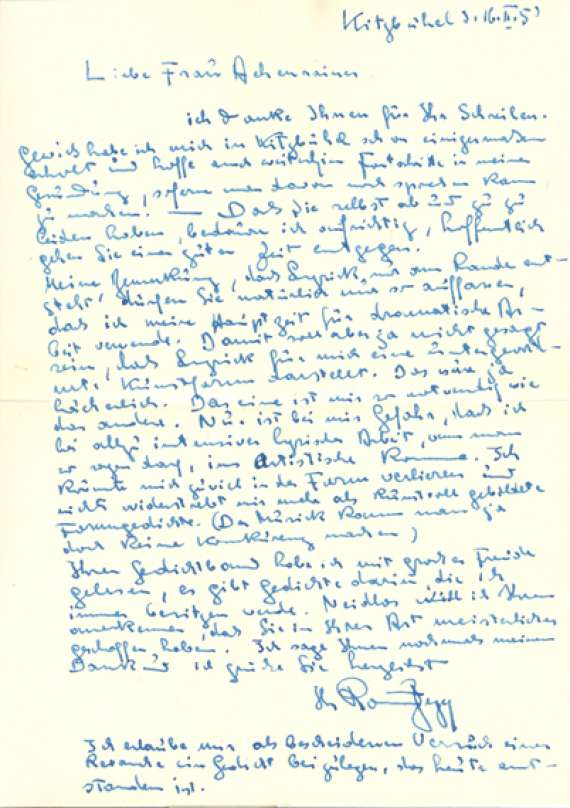 Kitzbühel d. 16. II. 53
Liebe Frau Achenrainer
ich danke Ihnen für Ihr Schreiben.
Gewiß habe ich mich in Kitzbühel schon einigermaßen
erholt und hoffe auch weiterhin Fortschritte in meiner
Gesundung, sofern man davon noch sprechen kann
zu machen. — Daß Sie selbst ab und zu zu
leiden haben, bedaure ich aufrichtig, hoffentlich
gehen Sie einer guten Zeit entgegen.
Meine Bemerkung, daß Lyrick nur am Rande ent-
steht' dürfen Sie natürlich nur so auffassen,
daß ich meine Hauptzeit für dramatische Ar-
beit verwende. Damit soll aber ja nicht gesagt
sein, daß Lyrick für mich eine untergeord-
nete Kunstform darstellt. Das wäre ja
lächerlich. Das eine ist mir so notwendig wie
das andere. Nur ist bei mir Gefahr, daß ich
bei allzu intensiver lyrischer Arbeit, wenn man
so sagen darf, ins Artistische komme. Ich
könnte mich zu in der Form verlieren und
nichts widerstrebt mir mehr als kunstvoll gebildete
Formgedichte. (Der Musick kann man ja
doch keine Konkurenz machen)
Ihren Gedichtband habe ich mit großer Freude
gelesen, es gibt Gedichte darin, die ich
immer besitzen werde. Neidlos will ich Ihnen
anerkennen, daß Sie in Ihrer Art meisterliches
geschaffen haben. Ich sage Ihnen nochmals meinen
Dank und ich grüße Sie herzlichst
Ihr
Ich erlaube mir als bescheidenen Versuch einer
Revanche ein Gedicht beizulegen, das heute ent-
standen ist.